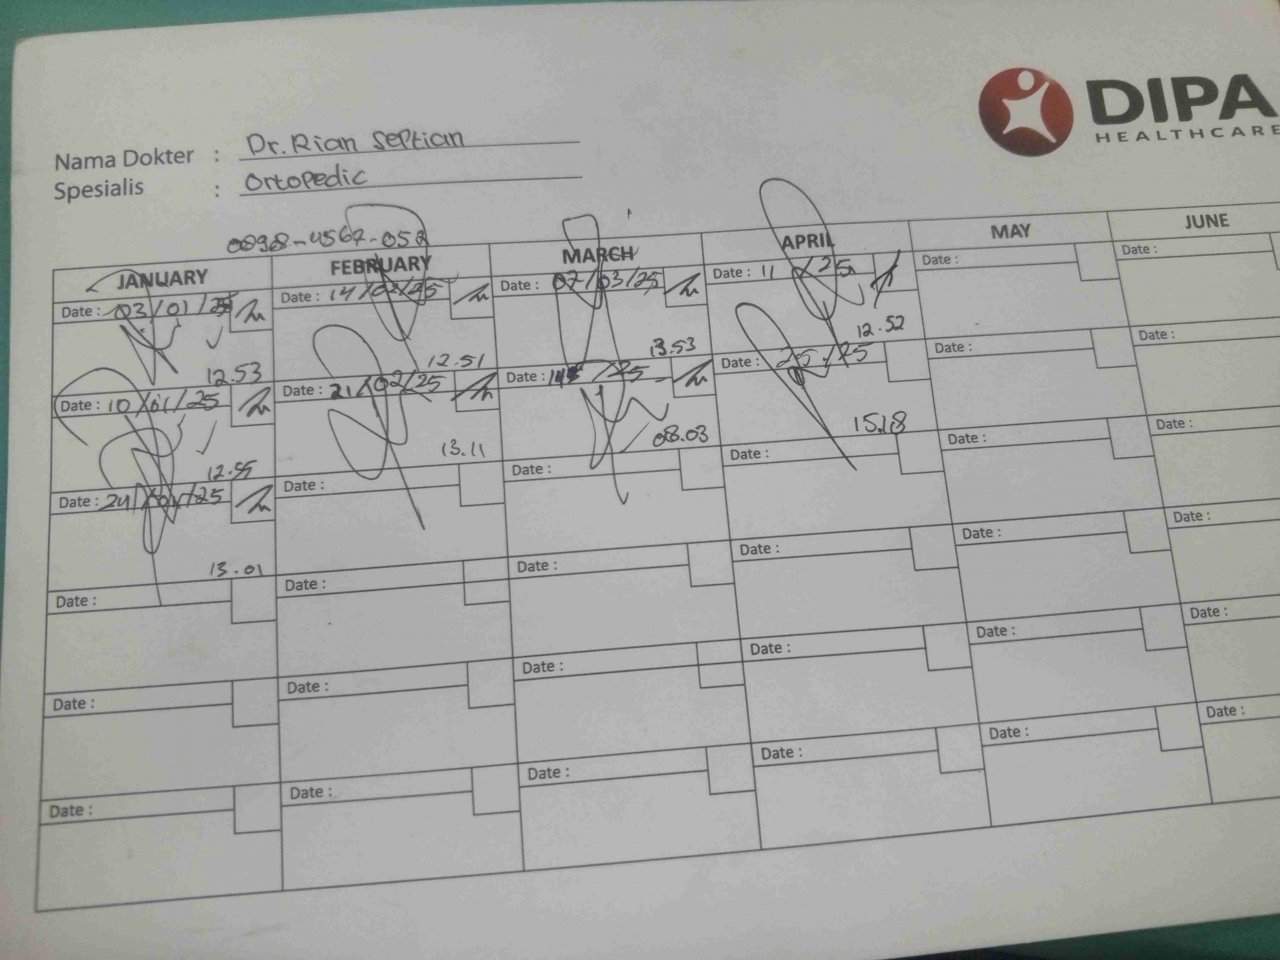 DIPA
HEALTHCARE
Nama Dokter : Dr. Rian Septian
Spesialis : Ortopedic
JANUARY FEBRUARY MARCH APRIL MAY JUNE
Date : 03/01/25 Date : 14/02/25 Date : 07/03/25 Date : 11 /25 Date : Date :
12.53 12.51 13.53 12.52
Date : 10/01/25 Date : 21/02/25 Date : /25 Date : 25 /25 Date : Date :
12.55 13.11 08.03 15.18
Date : 24/01/25 Date : Date : Date : Date : Date :
13.01
Date : Date : Date : Date : Date : Date :
Date : Date : Date : Date : Date : Date :
Date : Date : Date : Date : Date : Date :